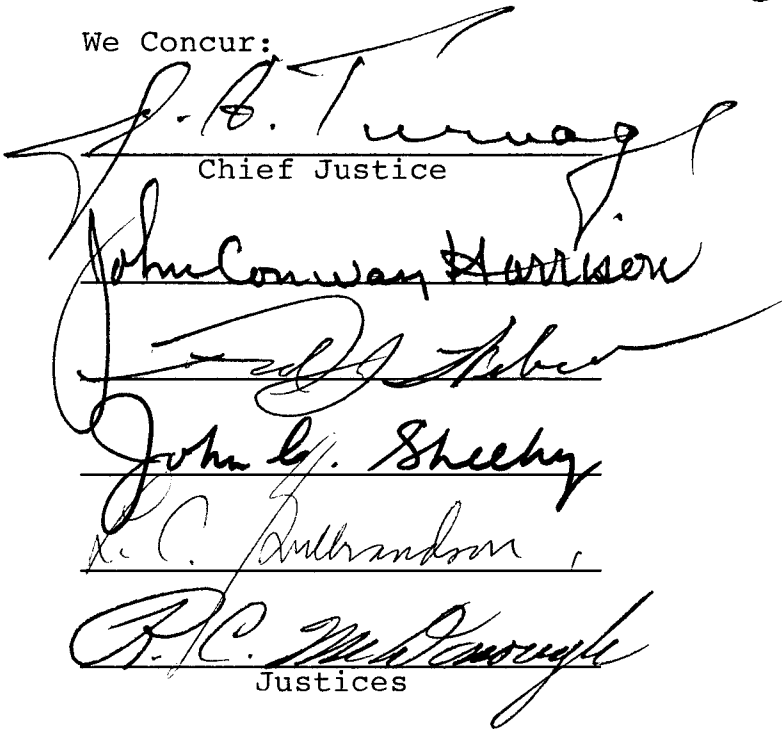 We Concur:
J. A. Turnage
Chief Justice
John Conway Harrison
Fred J. Weber
John C. Sheehy
L. C. Gulbrandson
R. C. McDonough
Justices